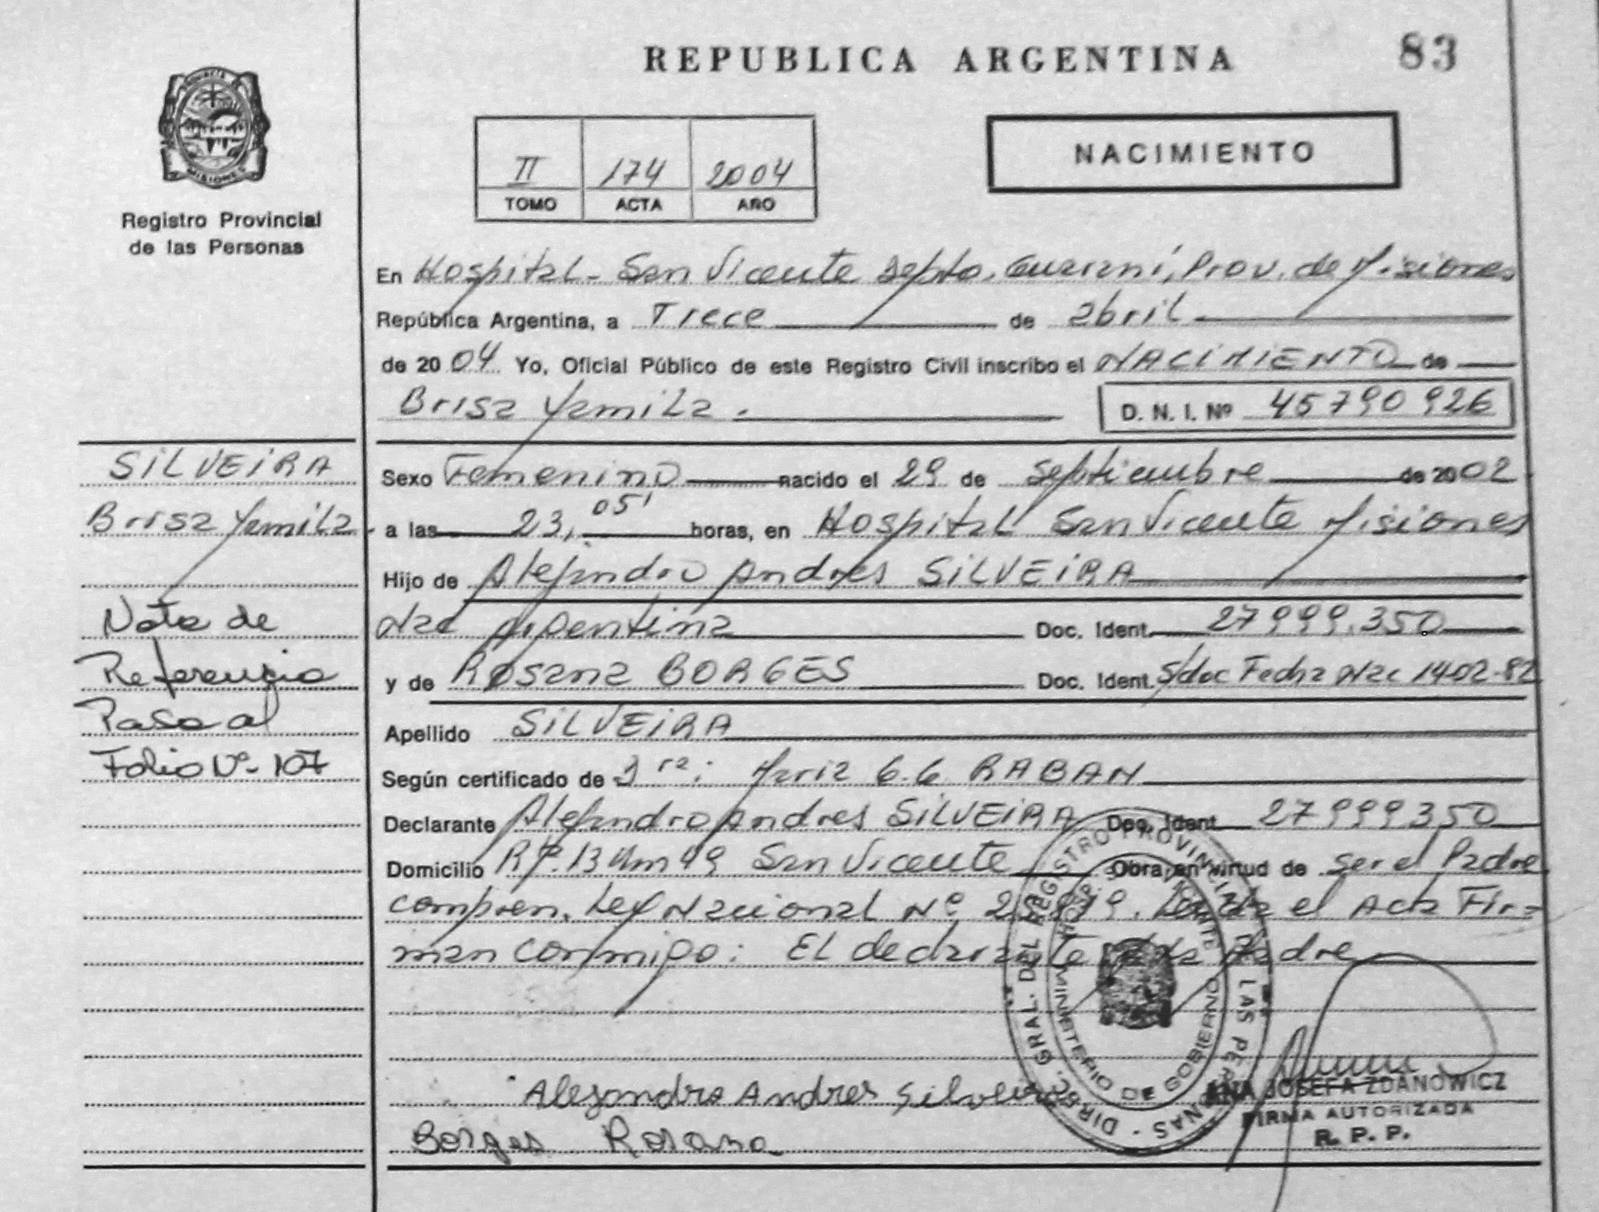 REPUBLICA ARGENTINA
83
PROVINCIA
MISIONES
Registro Provincial
de las Personas
II 174 2004
TOMO ACTA AÑO
NACIMIENTO
En Hospital - San Vicente Depto. Guaraní, Prov. de Misiones
República Argentina, a Trece de abril
de 2004 Yo, Oficial Público de este Registro Civil inscribo el NACIMIENTO de
Brisa Yamila. D. N. I. Nº 45790926
SILVEIRA
Brisa Yamila
Nota de
Referencia
Pasa al
Folio Nº 107
Sexo Femenino nacido el 29 de Septiembre de 2002
a las 23,05' horas, en Hospital San Vicente Misiones
Hijo de Alejandro Andres SILVEIRA
Nac Argentina Doc. Ident. 27999.350
y de Rosana BORGES Doc. Ident. S/doc Fecha Nac 14-02-82
Apellido SILVEIRA
Según certificado de Dra: Maria G.G RABAN
Declarante Alejandro Andres SILVEIRA Doc. Ident. 27999350
Domicilio R.P. 13 Km 49 San Vicente Obra en virtud de ser el Padre
compren. Ley Nacional Nº Leída el Acta Fir-
man conmigo: El declarante y la Madre
Alejandro Andres Silveira
Borges Rosana
DIREC. GRAL. DEL REGISTRO PROVINCIAL DE LAS PERSONAS
MINISTERIO DE GOBIERNO
ANA JOSEFA ZDANOWICZ
FIRMA AUTORIZADA
R. P. P.